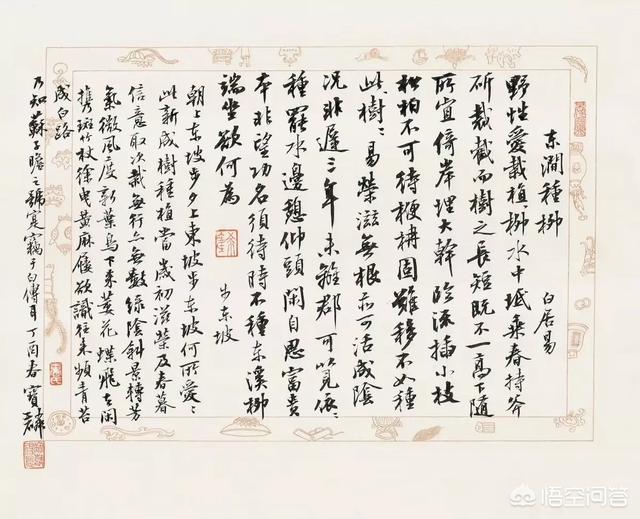 东澗種柳 白居易
野性愛栽植柳水中坻乘春持斧
斫裁截而樹之長短既不一高下随
所宜倚岸埋大幹臨流插小枝
松柏不可待楩楠固難移不如種
此樹〻易榮滋無根亦可活成陰
況非遲三年未離郡可以見依〻
種罷水邊憩仰頭閑自思富貴
本非望功名須待時不種东溪柳
端坐欲何為
步东坡
朝上东坡步夕上東坡步东坡何所愛〻
此新成樹種植當歲初滋榮及春暮
信意取次栽無行亦無數綠陰斜景轉芳
氣微風度新葉鳥下來萎花蝶飛去閑
攜斑竹杖徐曳黃麻屨欲識往來頻青苔
成白路
乃知蘇子瞻之號寔竊于白傅耳丁酉春寶麟
悟空问答